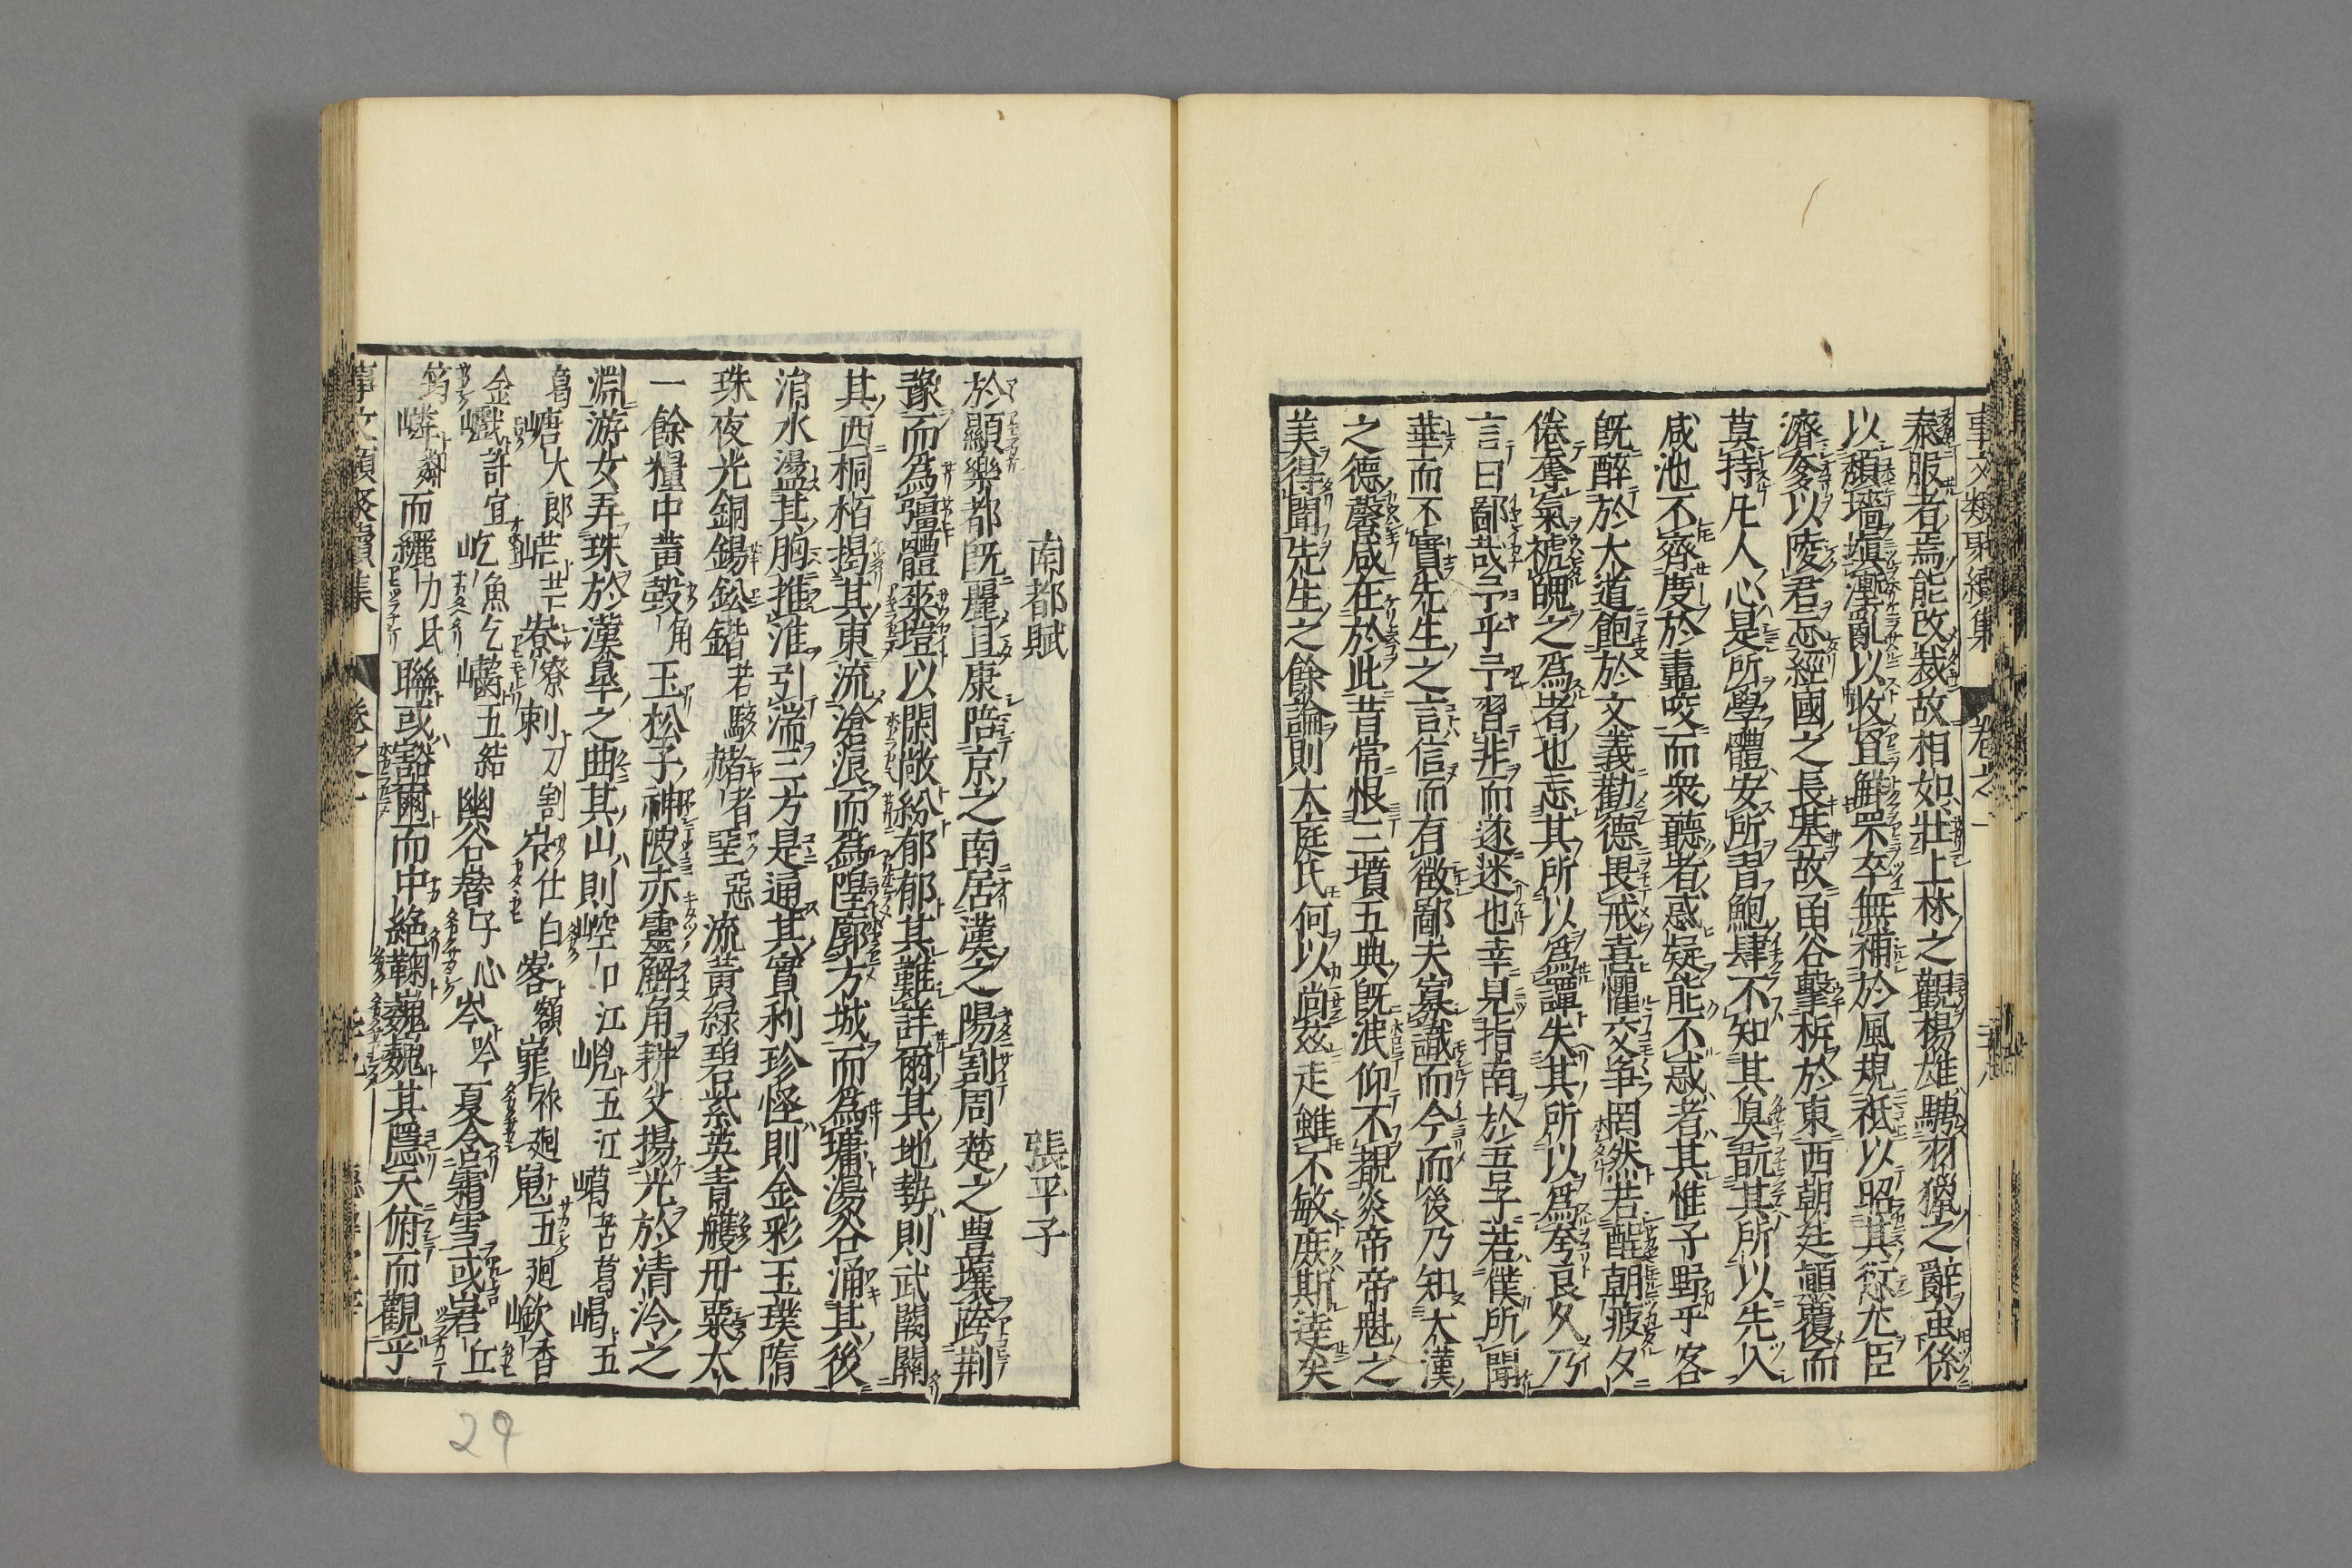 事文類聚續集 卷之一
泰服者焉能改裁故相如壯上林之觀楊雄騁羽獵之辭雖係
以頹墻塡漸亂以收罝解罘卒無補於風規祗以昭其愆尤臣
濟奓以陵君忘經國之長基故函谷擊柝於東西朝廷顚覆而
莫持凡人心是所學體安所習鮑肆不知其臭翫其所以先入
咸池不齊度於䵷咬而衆聽者惑疑能不惑者其惟子野乎客
旣醉於大道飽於文義勸德畏戒喜懼交爭罔然若酲朝疲夕
倦奪氣褫魄之爲者也忘其所以爲譚失其所以爲夸良久乃
言曰鄙哉予乎予習非而遂迷也幸見指南於吾子若僕所聞
華而不實先生之言信而有徵鄙夫寡識而今而後乃知大漢
之德馨咸在於此昔常恨三墳五典旣泯仰不覩炎帝帝魁之
美得聞先生之餘論則大庭氏何以尚茲走雖不敏庶斯達矣
南都賦 張平子
於顯樂都旣麗且康陪京之南居漢之陽割周楚之豊壤跨荆
豫而爲彊體爽塏以閑敞紛郁郁其難詳爾其地勢則武闕關
其西桐栢揭其東流滄浪而爲隍廓方城而爲墉湯谷涌其後
淯水盪其胸推淮引湍三方是通其寶利珍怪則金彩玉璞隋
珠夜光銅錫鉛鍇若駭赭者堊惡流黃綠碧紫英青雘丹粟太
一餘糧中黃瑴角玉松子神陂赤靈解角耕父揚光於清泠之
淵游女弄珠於漢臯之曲其山則崆口江㟅五江嶱苦葛嵑五
葛嵣大郎㟐芒嶚刺刀割岝仕白㟯額嶊嵬五廻㠔香
金巇許宜屹魚乞㘖五結幽谷嶜岑吟夏含霜雪或岩丘
筠嶙鄰而纚力氏聯或豁爾而中絶鞠巍巍其隱天俯而觀乎
事文類聚續集 卷之一